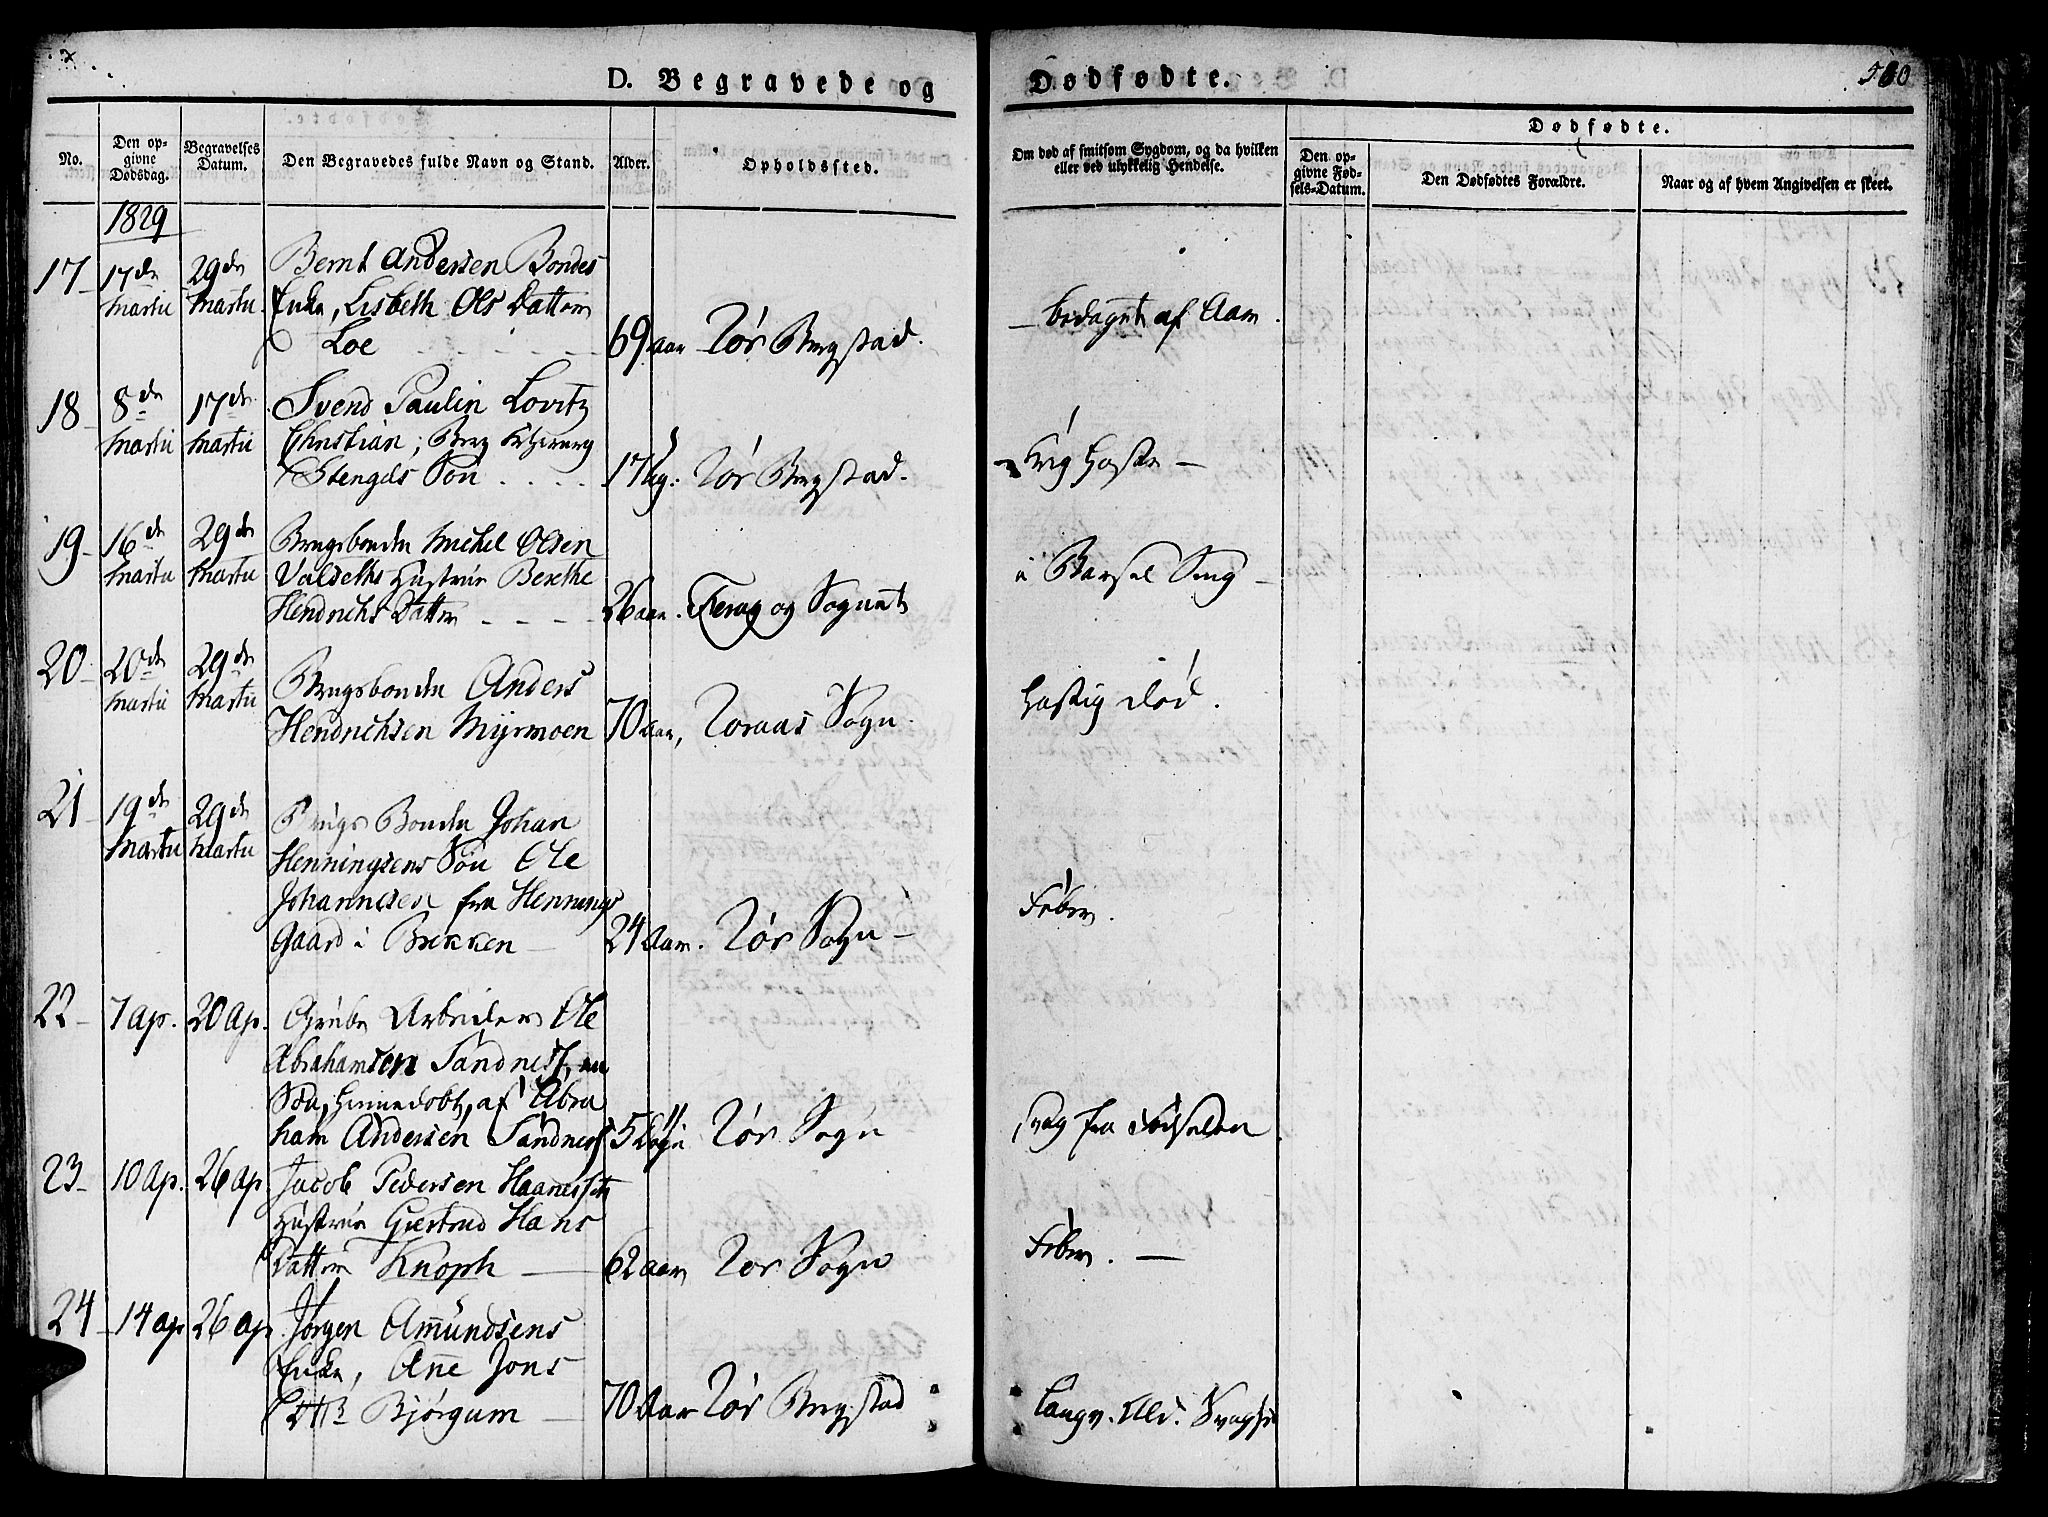 D. Begravede og Dødfødte.
500
No.
Den opgivne Dødsdag.
Begravelses Datum.
Den Begravedes fulde Navn og Stand.
Alder.
Opholdssted.
Om død af smitsom Sygdom, og da hvilken
eller ved ulykkelig Hendelse.
Dødfødte.
Den opgivne Fødsels-Datum.
Den Dødfødtes Forældre.
Naar og af hvem Angivelsen er skeet.
1829
17 17de Martii 29de Martii Bernt Andersen Bondes
Enke, Lisbeth Ols Datter
Loe 69 Aar Rør Bergstad. bedaget af Aar.
18 8de Martii 17de Martii Svend Paulin Lovitz
Christian, Berg
Stengels Søn 17 Ug: Rør Bergstad. Krig Hoste
19 16de Martii 29de Martii Brugsbonde Michel Olsen
Valseths Hustrue Berethe
Hendrichs Datter 26 aar. Ferag og Sognet i Barsel Seng
20 20de Martii 29de Martii Brugsbonde Anders
Hendrichsen Myrmoen 70 Aar, Røraas Sogn. hastig død.
21 19de Martii 29de Martii Brugs Bonde Johan
Henningsens Søn Ole
Johannesen fra Hennings
Gaard i Brekken 24 Aar. Rør Sogn Feber.
22 7 ap. 20 ap. Grube Arbeider Ole
Abrahamsen Sandness, en
Søn, hiemedøbt, af Abra
ham Andersen Sandness 5 Dage Rør Sogn Svag fra Fødselen
23 10 ap. 26 ap Jacob Pedersen Haanessets
Hustrue Giertrud Hans
Datter Knoph 62 aar Rør Sogn Feber.
24 14 ap 26 ap. Jørgen Amundsens
Enke, Anne Jons
DttR Bjørgum 70 Aar Rør Bergstad Langv. Ald. Svaghed